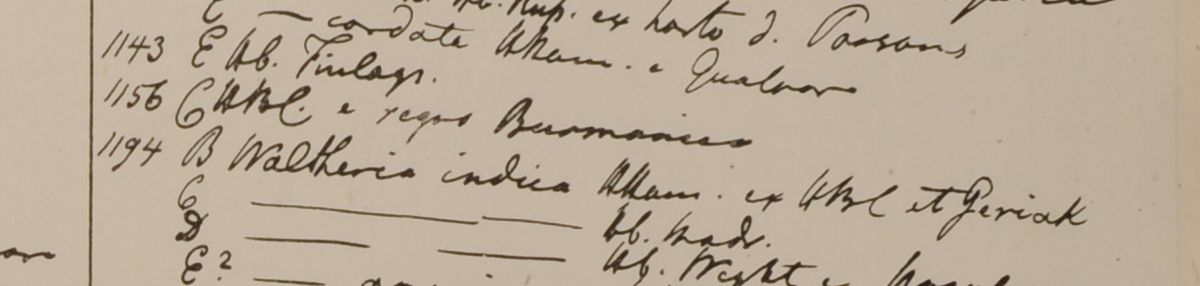 C — Hb. Rup. ex horto d. Parsons
— cordata Hham. e Gualpar
1143 E Hb. Finlays.
1156 C HBC. e regno Burmanico
1194 B Waltheria indica Hham. ex HBC et Geriak
C — — Hb. Madr.
D — — Hb. Wight
E? —